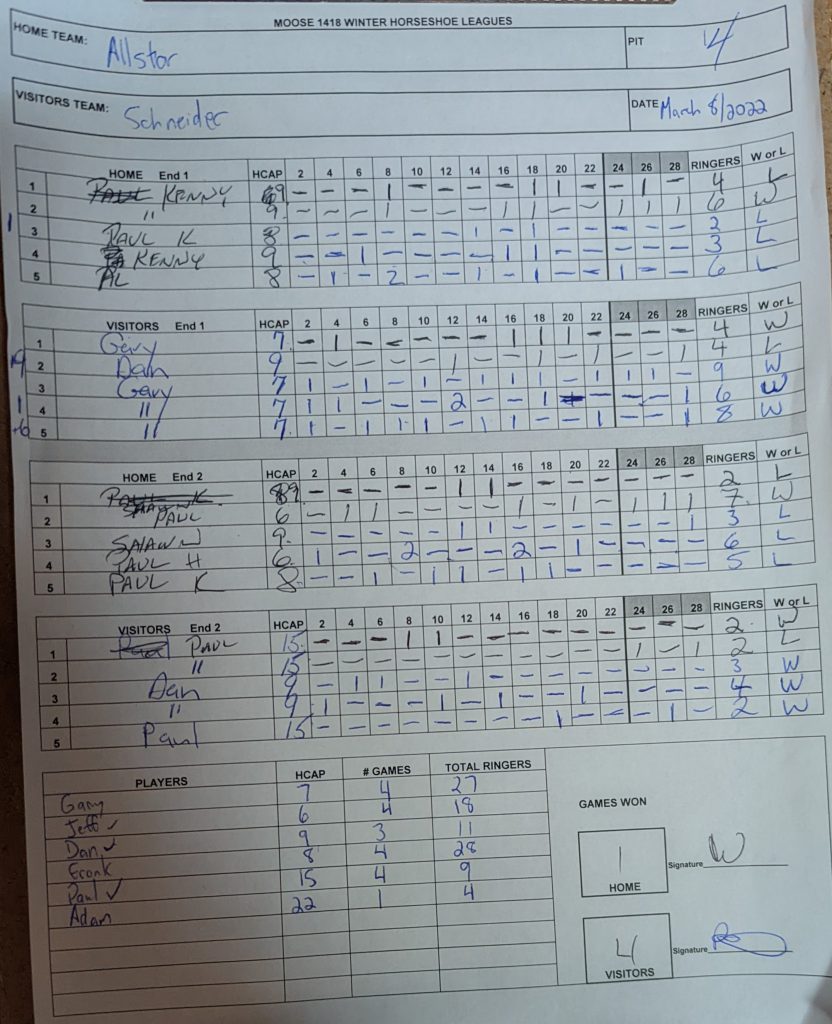 MOOSE 1418 WINTER HORSESHOE LEAGUES
HOME TEAM: Allstar PIT 4
VISITORS TEAM: Schneider DATE March 8/2022
HOME End 1 HCAP 2 4 6 8 10 12 14 16 18 20 22 24 26 28 RINGERS W or L
1 KENNY 9 - - - 1 - - - - 1 1 - - 1 - 4 L
2 " 9 - - - 1 - - - 1 1 - - 1 1 1 6 W
3 PAUL K 8 - - - - - - 1 - 1 - - - - - 2 L
4 KENNY 9 - - 1 - - - - 1 1 - - - - - 3 L
5 AL 8 - 1 - 2 - - 1 - 1 - - 1 - - 6 L
VISITORS End 1 HCAP 2 4 6 8 10 12 14 16 18 20 22 24 26 28 RINGERS W or L
1 Gary 7 - 1 - - - - - 1 1 1 - - - - 4 W
2 Dan 9 - - - - - 1 - - 1 - 1 - - 1 4 L
3 Gary 7 1 - 1 - 1 - 1 1 1 - 1 1 1 - 9 W
4 " 7 1 1 - - - 2 - - 1 - - - - 1 6 W
5 " 7 1 - 1 1 1 - 1 1 - - - 1 - - 1 8 W
HOME End 2 HCAP 2 4 6 8 10 12 14 16 18 20 22 24 26 28 RINGERS W or L
1 SHAWN 9 - - - - - 1 1 - - - - - - - 2 L
2 PAUL 6 - 1 1 - - - - 1 - 1 - 1 1 1 7 W
3 SHAWN 9 - - - - - 1 1 - - - - - - 1 3 L
4 PAUL H 6 1 - - 2 - - - 2 - 1 - - - - 6 L
5 PAUL K 8 - - 1 - 1 1 - 1 1 - - - - - 5 L
VISITORS End 2 HCAP 2 4 6 8 10 12 14 16 18 20 22 24 26 28 RINGERS W or L
1 PAUL 15 - - - 1 1 - - - - - - - - - 2 W
2 " 15 - - - - - - - - - - - 1 - 1 2 L
3 Dan 9 - 1 1 - - 1 - - - - - - - - 3 W
4 " 9 1 - - - 1 - 1 - - 1 - - - - 4 W
5 Paul 15 - - - - - - - - 1 - - - 1 - 2 W
PLAYERS HCAP # GAMES TOTAL RINGERS
Gary 7 4 27
Jeff ✓ 6 4 18
Dan ✓ 9 3 11
Frank 8 4 28
Paul ✓ 15 4 9
Adam 22 1 4
GAMES WON
1 HOME Signature
4 VISITORS Signature